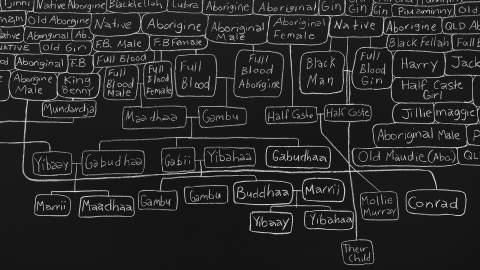 Jinri Native Aborigine Blackfellah Lubra Aborigine Aboriginal Gin Gin
Old Aborigine Native Aborigine Aboriginal Male Aboriginal Female Native Aborigine QLD
Native Aboriginal Ab. Black Fellah Full
Native Old Gin F.B. Male F.B Female
Aboriginal F.B Full Blood
Aborigine Male King Benny Full Blood Male Full Blood Female Full Blood Full Blood Aborigine Black Man Full Blood Gin Harry Jack
Half Caste Girl
Mundardja Maadhaa Gambu Half Caste Half Caste Jillie maggie
Aboriginal Male
Yibaay Gabudhaa Gabii Yibahaa Gabudhaa Old Maudie (Abo.)
Marrii Maadhaa Gambu Gambu Buddhaa Marrii Mollie Murray Conrad
Yibaay Yibahaa
Their Child